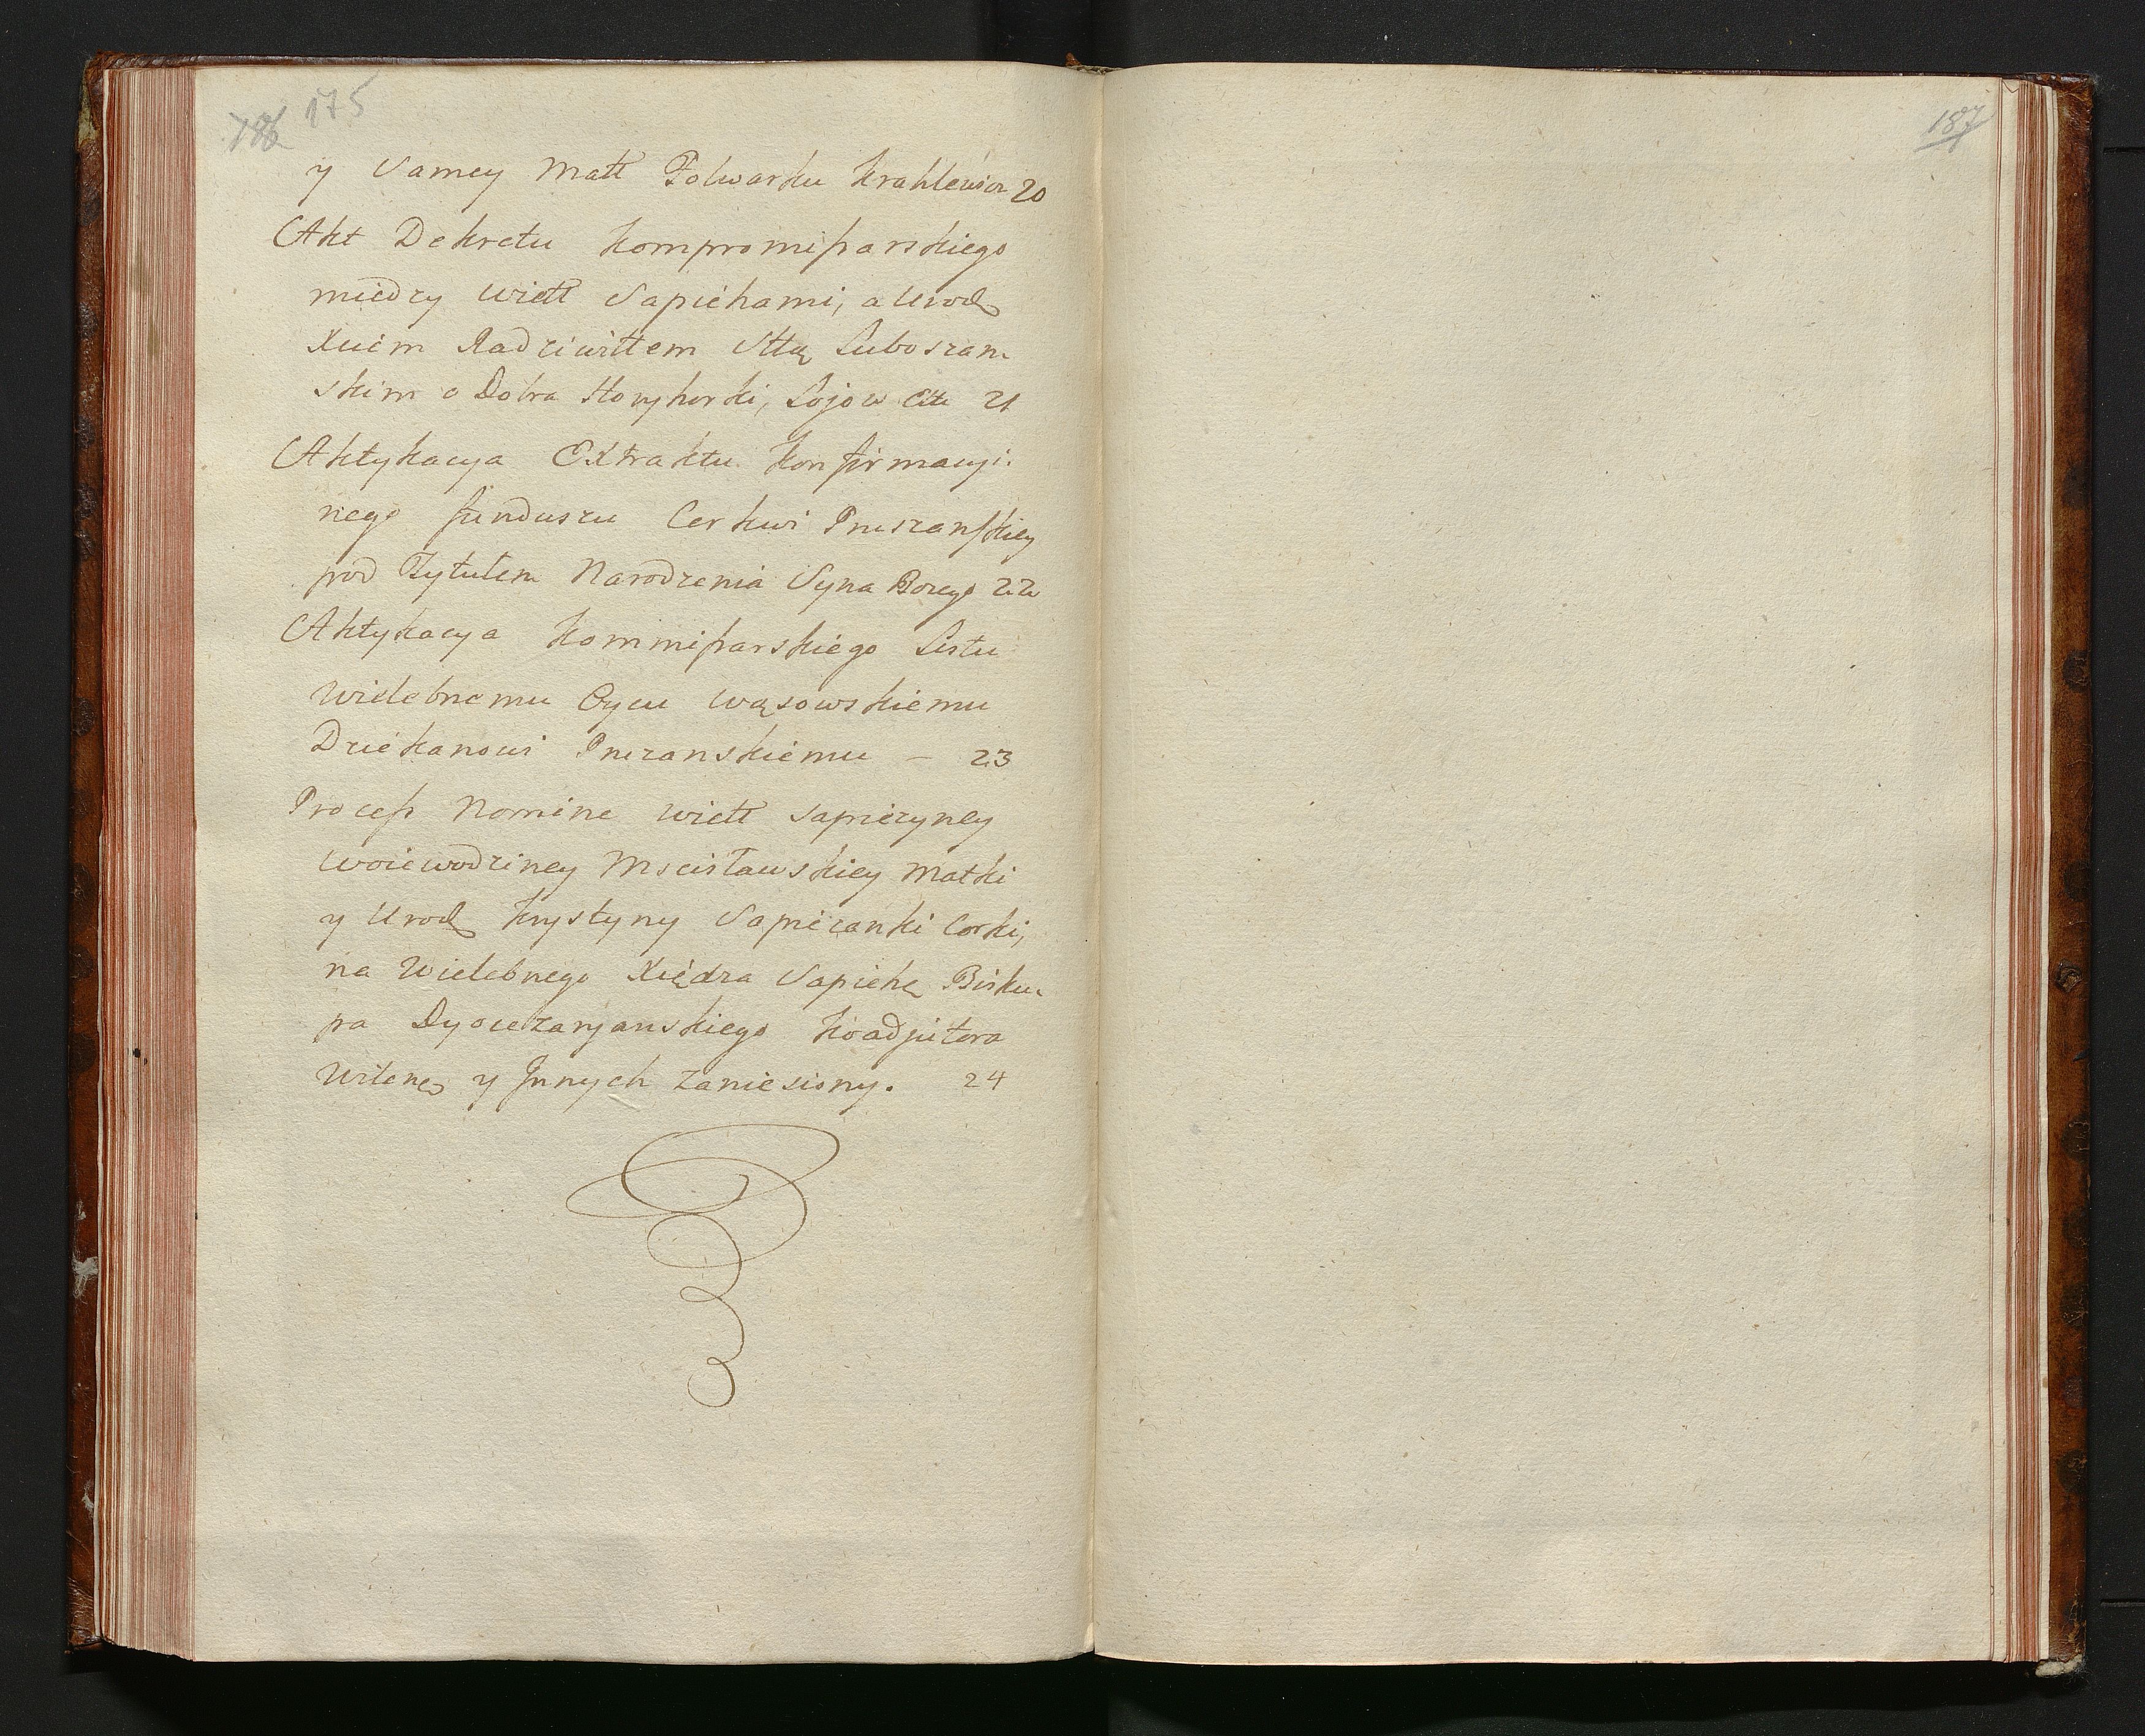 186 175
y Samey Matt Folwarku Krahlewicz 20
Akt Dekretu Kompromissarskiego
miedzy Wiell Sapiehami, a Urod
Xciem Radziwiłłem Sttą Luboszan
skim o Dobra Horyhorki, Łojow Ctt 21
Aktykacya Extraktu Konfirmacyi
nego funduszu Cerkwi Pruszanskiey
pod Tytułem Narodzenia Syna Bozego 22
Aktykacya Kommissarskiego Listu
Wielebnemu Oycu Wąsowskiemu
Dziekanowi Pruzanskiemu – 23
Process Nomine Wiell Sapiezyney
Woiewodziney Mscisławskiey Matki
y Urod Krystyny Sapiezanki Corki,
na Wielebnego Xiędza Sapiehę Bisku
pa Dyocezaryanskiego Koadjutora
Wilene y Jnnych zaniesiony. 24
187